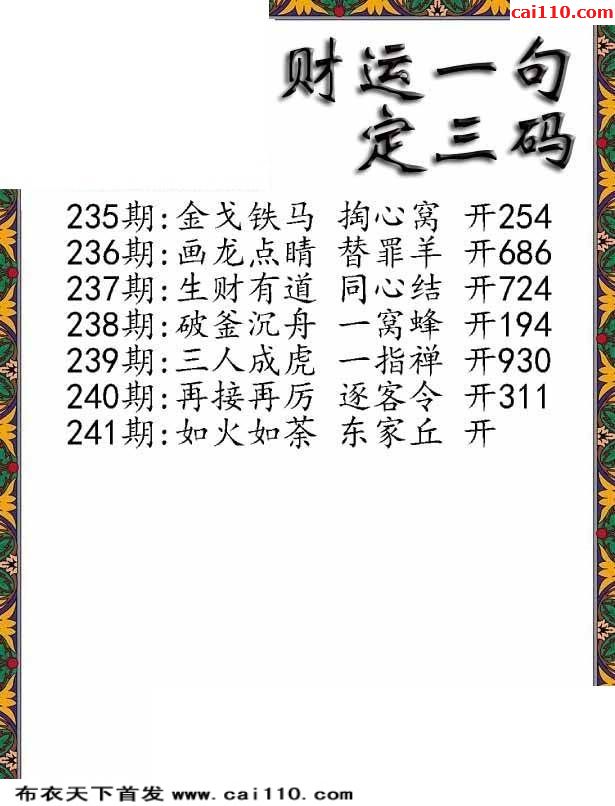 cai110.com
财运一句
定三码
235期:金戈铁马 掏心窝 开254
236期:画龙点睛 替罪羊 开686
237期:生财有道 同心结 开724
238期:破釜沉舟 一窝蜂 开194
239期:三人成虎 一指禅 开930
240期:再接再厉 逐客令 开311
241期:如火如荼 东家丘 开
布衣天下首发 www.cai110.com